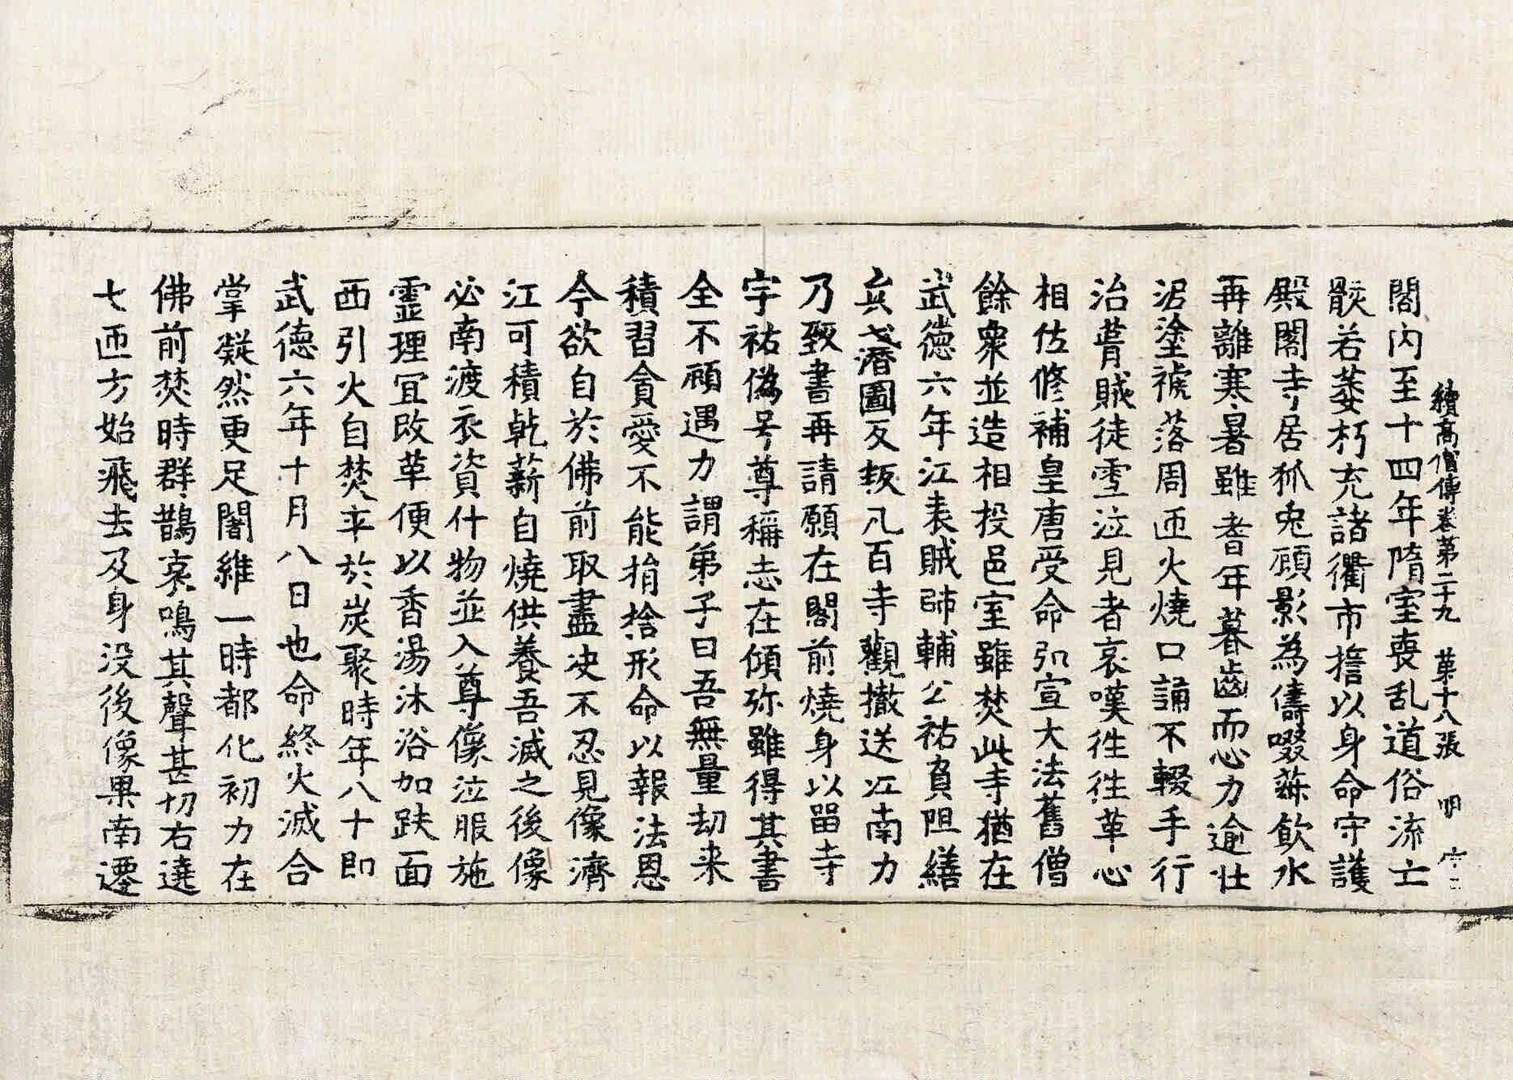 續高僧傳卷第二十九　第十八張　明
閤內至十四年隋室喪乱道俗流亡
骸若萎朽充諸衢市擔以身命守護
殿閣寺居狐兔顧影為儔啜菽飲水
再離寒暑雖耆年暮齒而心力逾壯
泥塗褫落周匝火燒口誦不輟手行
治葺賊徒雪泣見者哀嘆往往革心
相佐修補皇唐受命弘宣大法舊僧
餘衆並造相投邑室雖焚此寺猶在
武德六年江表賊帥輔公祐負阻繕
兵戈潛圖反叛凡百寺觀撤送江南力
乃致書再請願在閣前燒身以留寺
宇祐偽号尊稱志在傾殄雖得其書
全不顧遇力謂弟子曰吾無量劫来
積習貪愛不能捐捨形命以報法恩
今欲自於佛前取盡决不忍見像濟
江可積乾薪自燒供養吾滅之後像
必南渡衣資什物並入尊像泣服施
靈理冝改革便以香湯沐浴加趺面
西引火自焚卒於炭聚時年八十即
武德六年十月八日也命終火滅合
掌凝然更足闍維一時都化初力在
佛前焚時群鵲哀鳴其聲甚切右遶
七匝方始飛去及身没後像果南遷